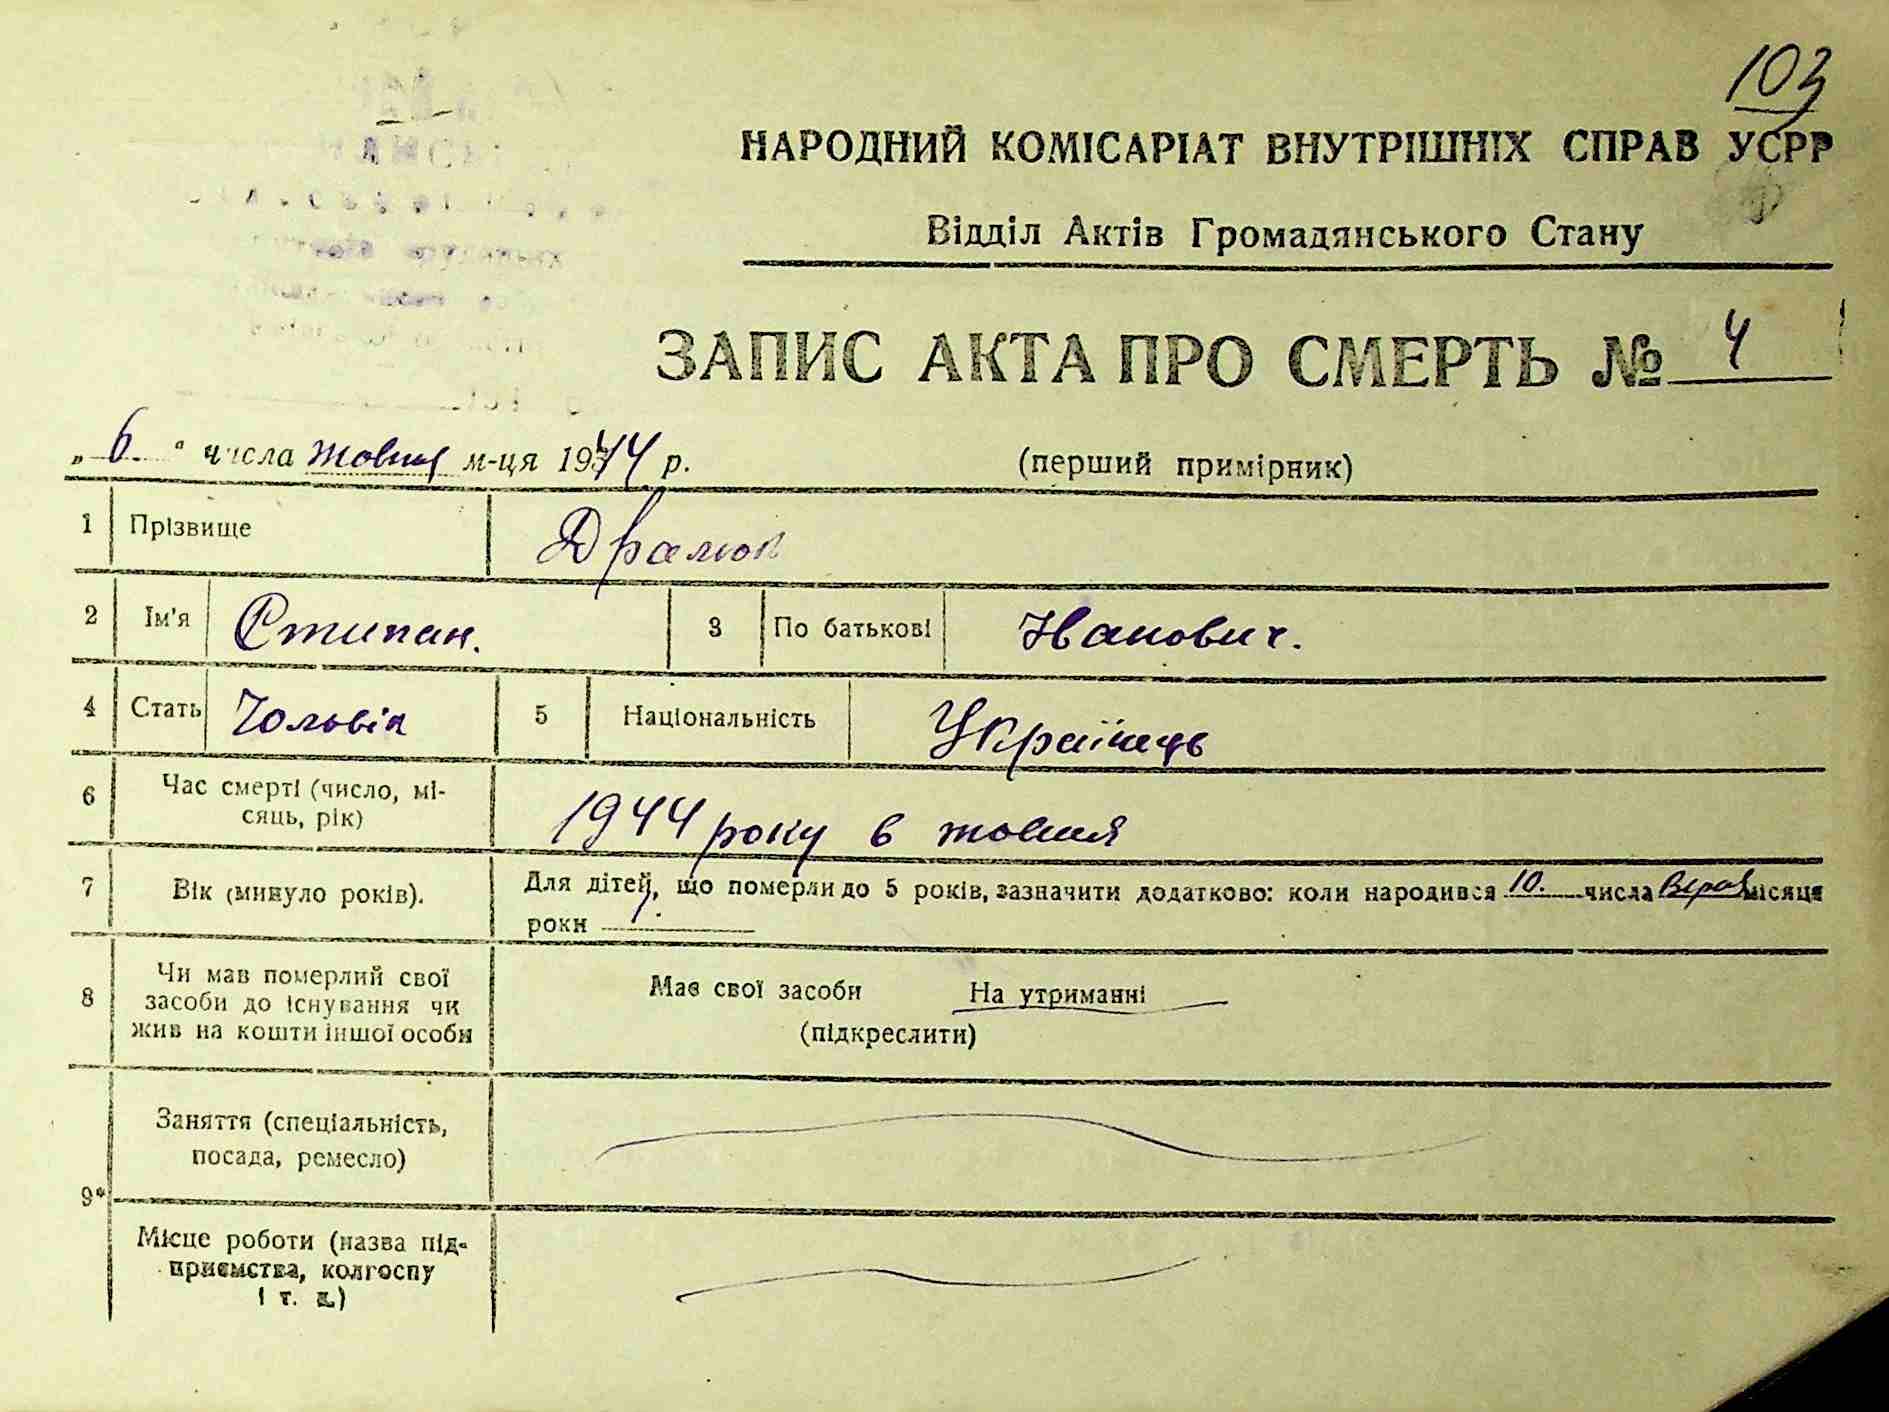 103
НАРОДНИЙ КОМІСАРІАТ ВНУТРІШНІХ СПРАВ УСРР
Відділ Актів Громадянського Стану
ЗАПИС АКТА ПРО СМЕРТЬ № 4
„ 6. " числа жовтня м-ця 1944 р.
(перший примірник)
1 Прізвище Дралюк
2 Ім'я Стипан. 3 По батькові Іванович.
4 Стать Чольвік 5 Національність Українець
6 Час смерті (число, мі-
сяць, рік) 1944 року 6 жовтня
7 Вік (минуло років). Для дітей, що померли до 5 років, зазначити додатково: коли народився 10. числа місяця
роки
8 Чи мав померлий свої
засоби до існування чи
жив на кошти іншої особи
Має свої засоби На утриманні
(підкреслити)
9* Заняття (спеціальність,
посада, ремесло)
Місце роботи (назва під-
приємства, колгоспу
і т. д.)